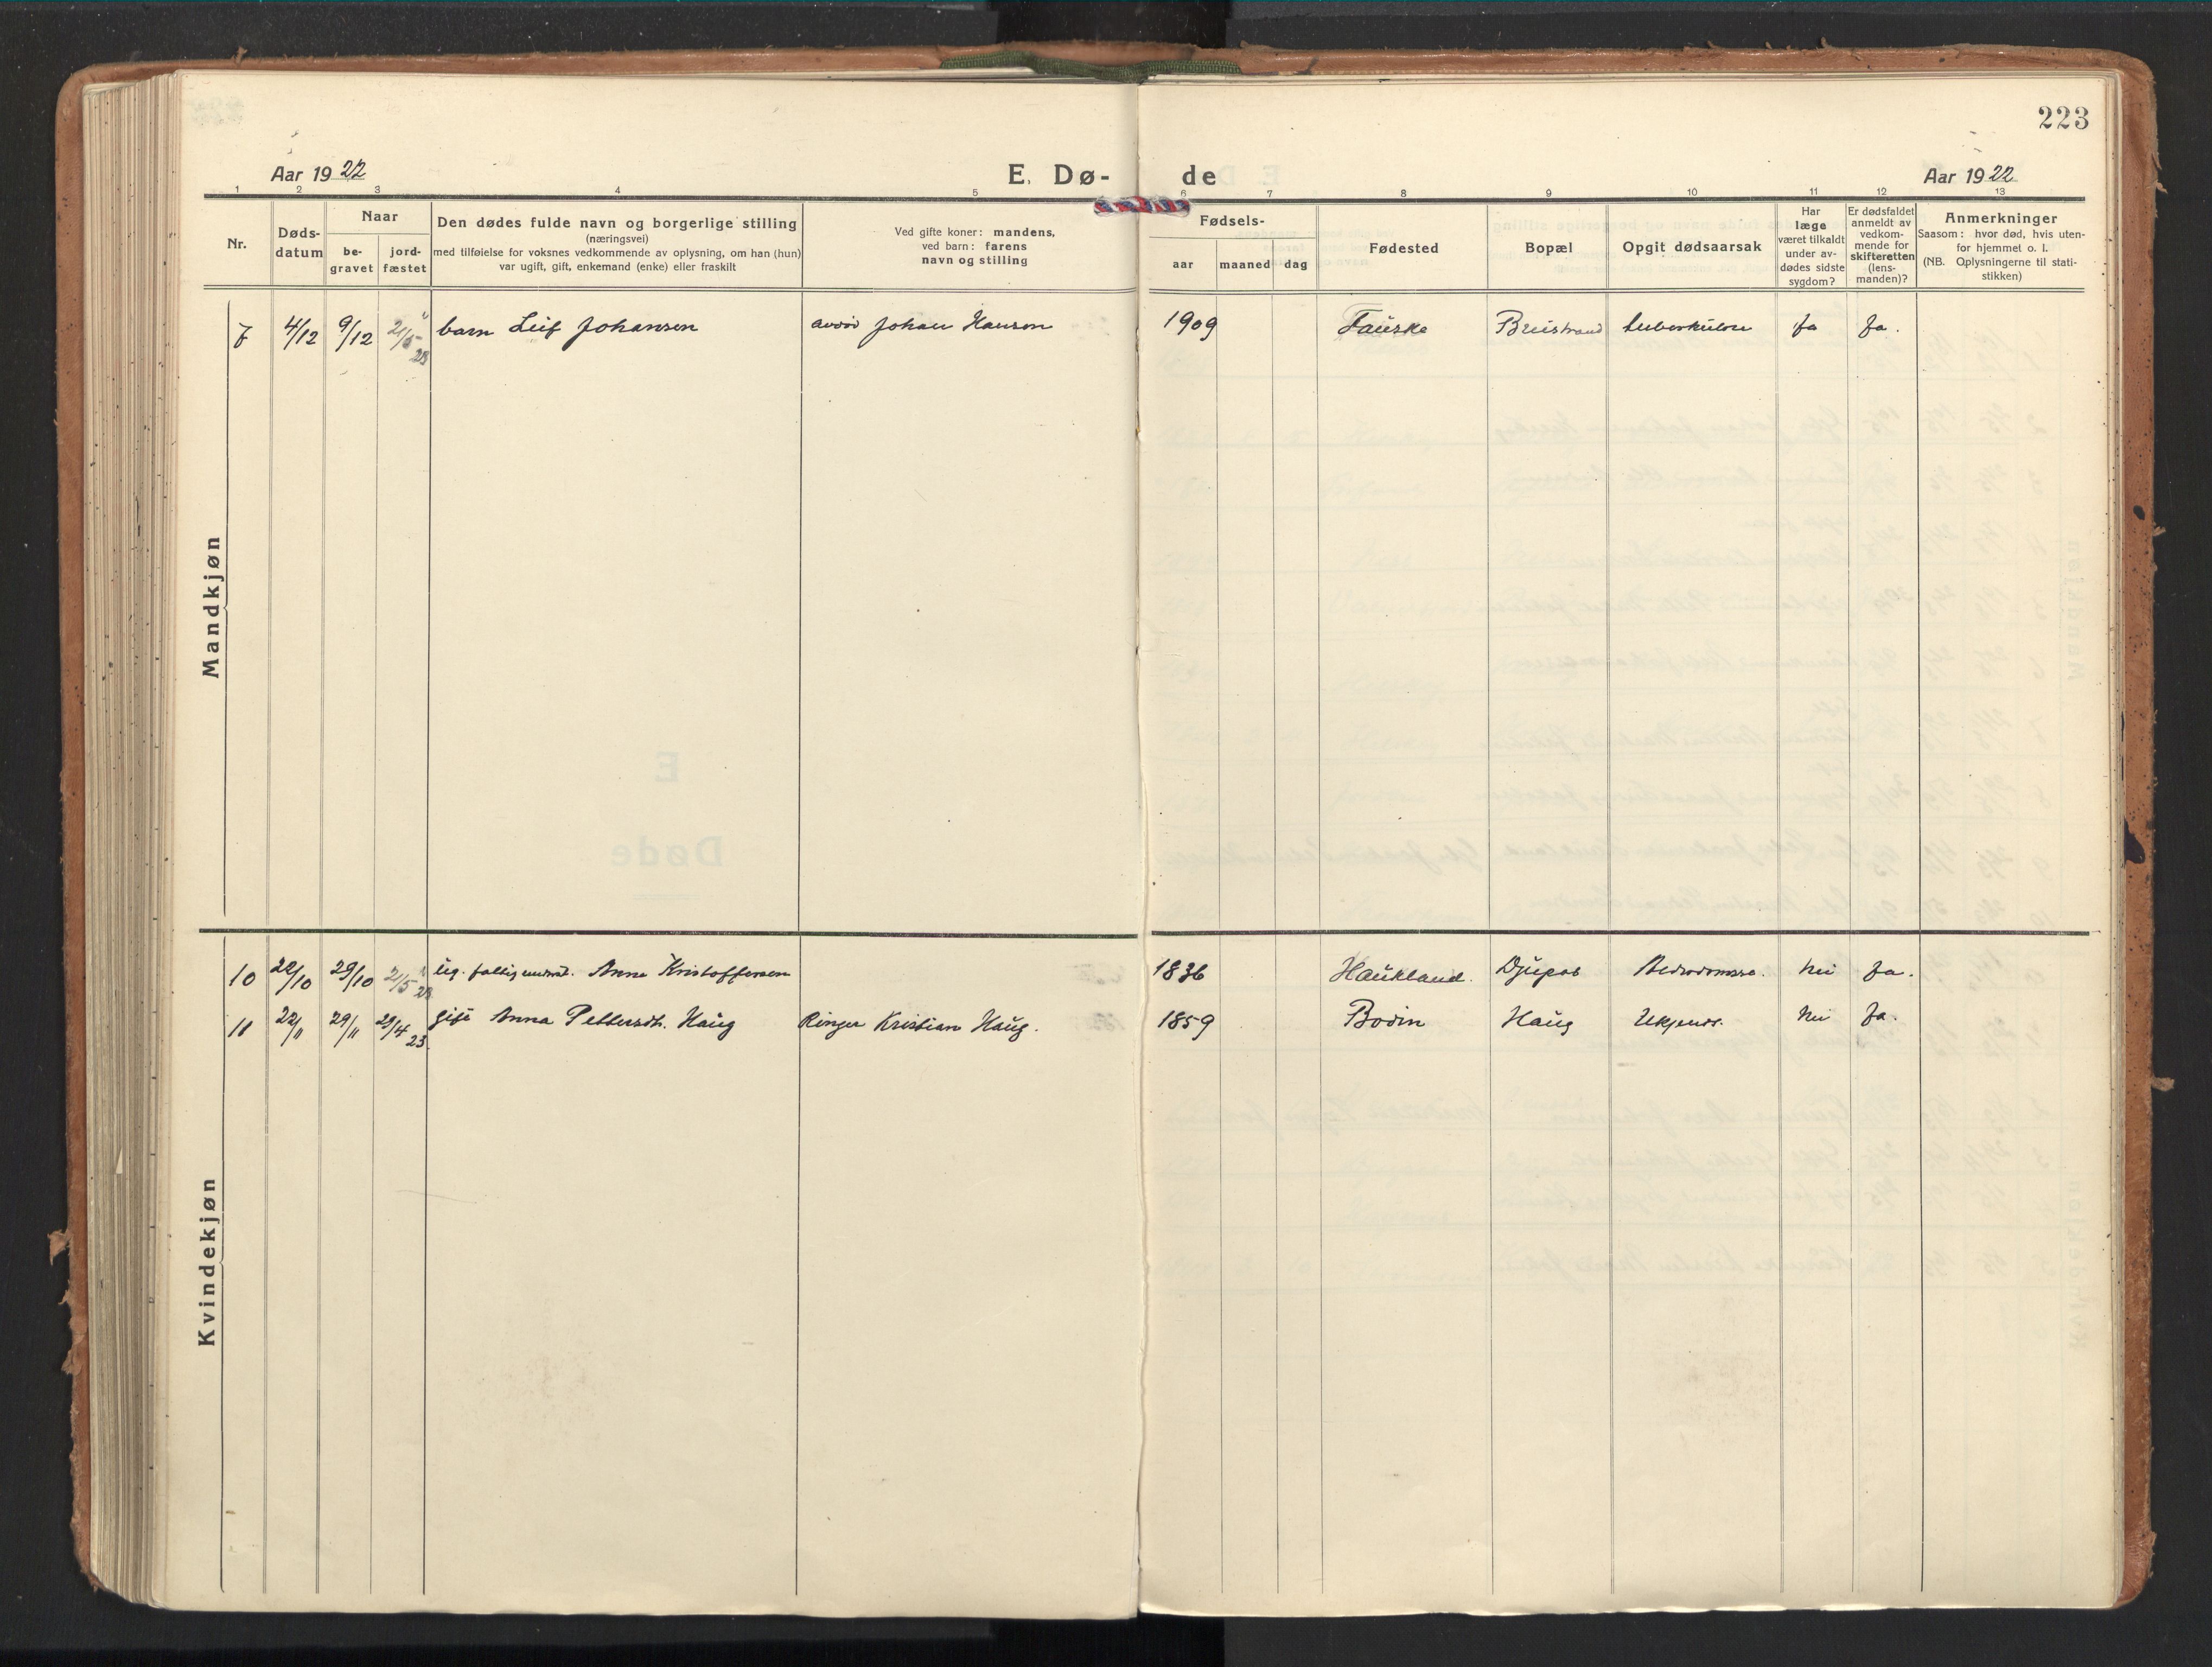 223
Aar 1922 E. Dø- de Aar 1922
1 2 3 4 5 6 7 8 9 10 11 12 13
Nr.
Døds-
datum
Naar
be-
gravet
jord-
fæstet
Den dødes fulde navn og borgerlige stilling
(næringsvei)
med tilføielse for voksnes vedkommende av oplysning, om han (hun)
var ugift, gift, enkemand (enke) eller fraskilt
Ved gifte koner: mandens,
ved barn: farens
navn og stilling
Fødsels-
aar maaned dag
Fødested
Bopæl
Opgit dødsaarsak
Har
læge
været tilkaldt
under av-
dødes sidste
sygdom?
Er dødsfaldet
anmeldt av
vedkom-
mende for
skifteretten
(lens-
manden)?
Anmerkninger
Saasom: hvor død, hvis uten-
for hjemmet o. l.
(NB. Oplysningerne til stati-
stikken)
Mandkjøn
7 4/12 9/12 21/5 23 barn Leif Johansen avdød Johan Hansen 1909 Fauske Breistrand tuberkulose Ja Ja.
Kvindekjøn
10 22/10 29/10 21/5 23 ug. fattigunderst. Anna Kristoffersen 1836 Haukland. Djupos Nei Ja.
11 22/11 29/11 29/4 23. gift Anna Pettersdt. Haug Ringer Kristian Haug. 1859 Bodin Haug Ukjendt. Nei Ja.